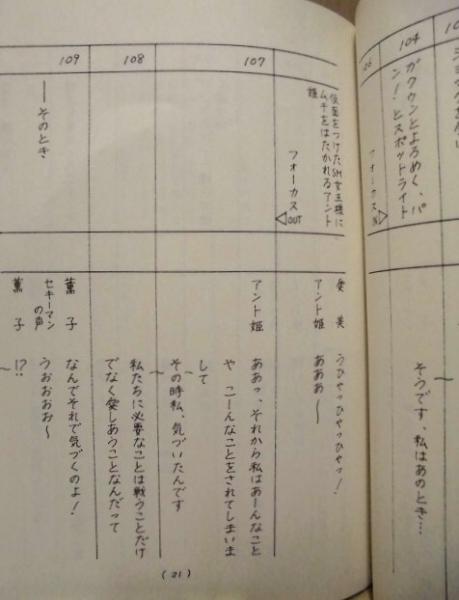 104
26
ガクウンとよろめく、パ
ン!とスポットライト
フォーカスIN
そうです、私はあのとき…
107
仮面をつけたSM女王様に
ムチをはたかれるアント
姫
フォーカスOUT
愛美 うひゃっひゃっひゃっ!
アント姫 あああ〜
アント姫 ああっ、それから私はあーんなこと
や こーんなことをされてしまいま
して
その時私、気づいたんです
108
私たちに必要なことは戦うことだけ
でなく愛しあうことなんだって
109
――そのとき
薫子 なんでそれで気づくのよ!
セキーマンの声 うおおおお〜
薫子 !?
(21)